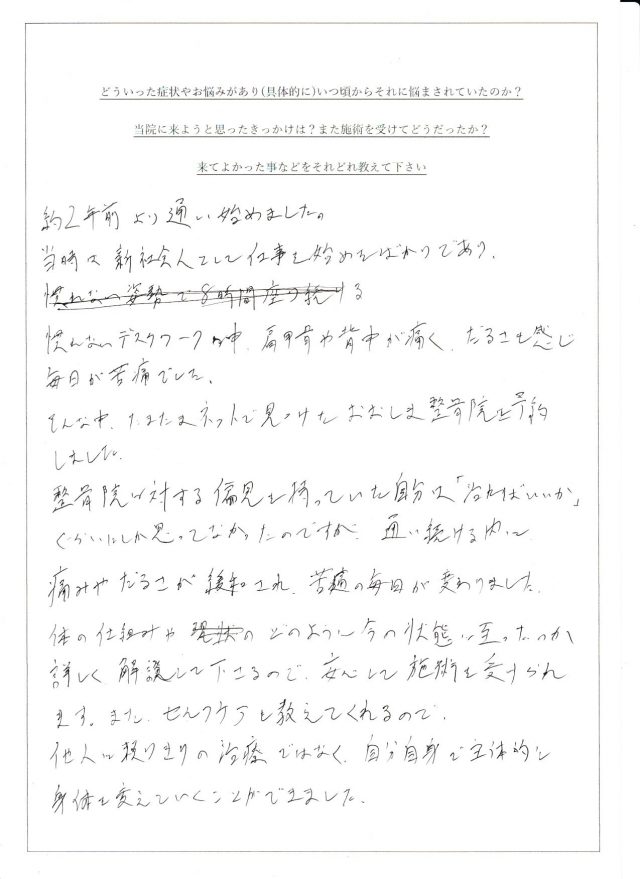 どういった症状やお悩みがあり(具体的に)いつ頃からそれに悩まされていたのか?
当院に来ようと思ったきっかけは?また施術を受けてどうだったか?
来てよかった事などをそれどれ教えて下さい
約2年前より通い始めました。
当時は新社会人として仕事を始めたばかりであり、
慣れない姿勢で8時間座り続ける
慣れないデスクワークの中、肩甲骨や背中が痛く、だるさも感じ
毎日が苦痛でした。
そんな中、たまたまネットで見つけたおおしま整骨院を予約
しました。
整骨院に対する偏見を持っていた自分は「治ればいいか」
くらいにしか思ってなかったのですが、通い続ける内に
痛みやだるさが緩和され、苦痛の毎日が変わりました。
体の仕組みや現状のどのように今の状態に至ったのか
詳しく解説して下さるので、安心して施術を受けられ
ます。また、セルフケアも教えてくれるので、
他人に頼りきりの治療ではなく、自分自身で主体的に
身体を変えていくことができました。